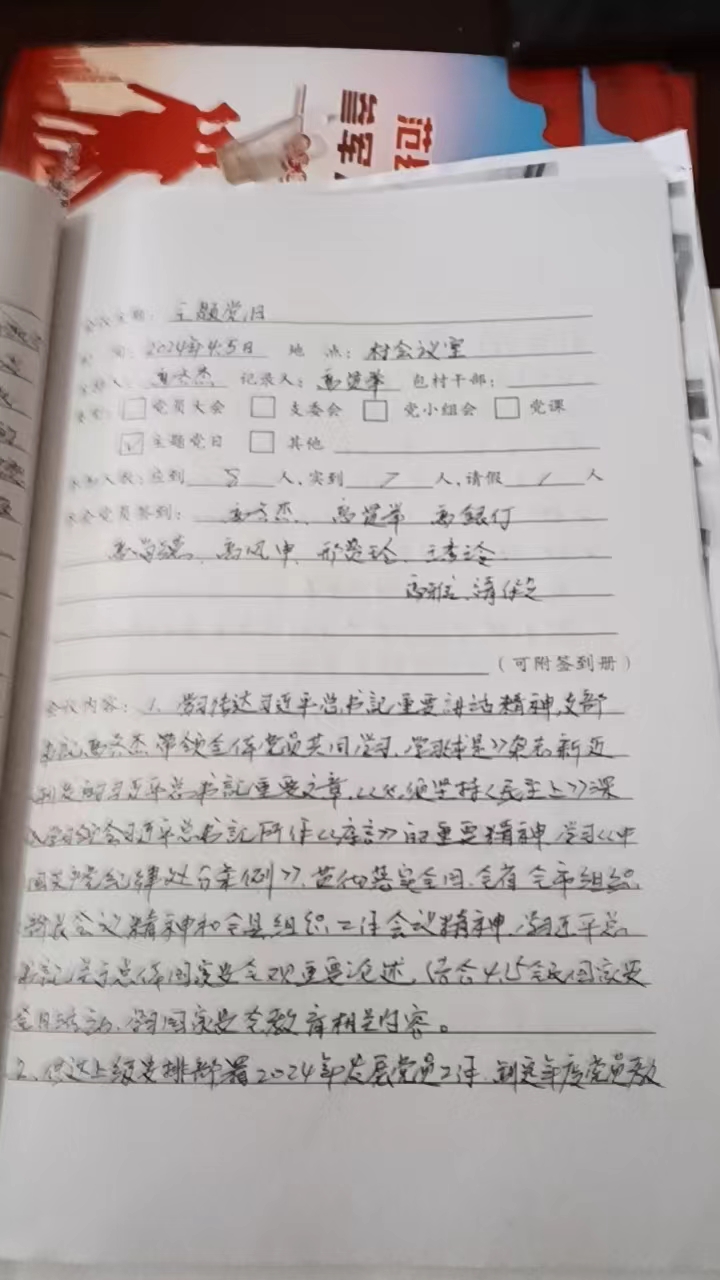 会议主题：主题党日
时间：2024年4.5日 地点：村会议室
主持人： 记录人： 包村干部：
党员大会 支委会 党小组会 党课
主题党日 其他
参加人数：应到 8 人，实到 7 人，请假 1 人
参会党员签到：
请假
（可附签到册）
会议内容：1、学习传达习近平总书记重要讲话精神，支部
书记 带领全体党员共同学习，学习《求是》杂志新近
刊发的习近平总书记重要文章，《必须坚持人民至上》深
入学习领会习近平总书记所作《序言》的重要精神，学习《中
国共产党纪律处分案例》，贯彻落实全国、全省、全市组织
部长会议精神和全县组织工作会议精神，习近平总
书记关于总体国家安全观重要论述，结合4.15全民国家安
全日活动，学习国家安全教育相关内容。
2、传达上级安排部署2024年发展党员工作，制定年度党员教